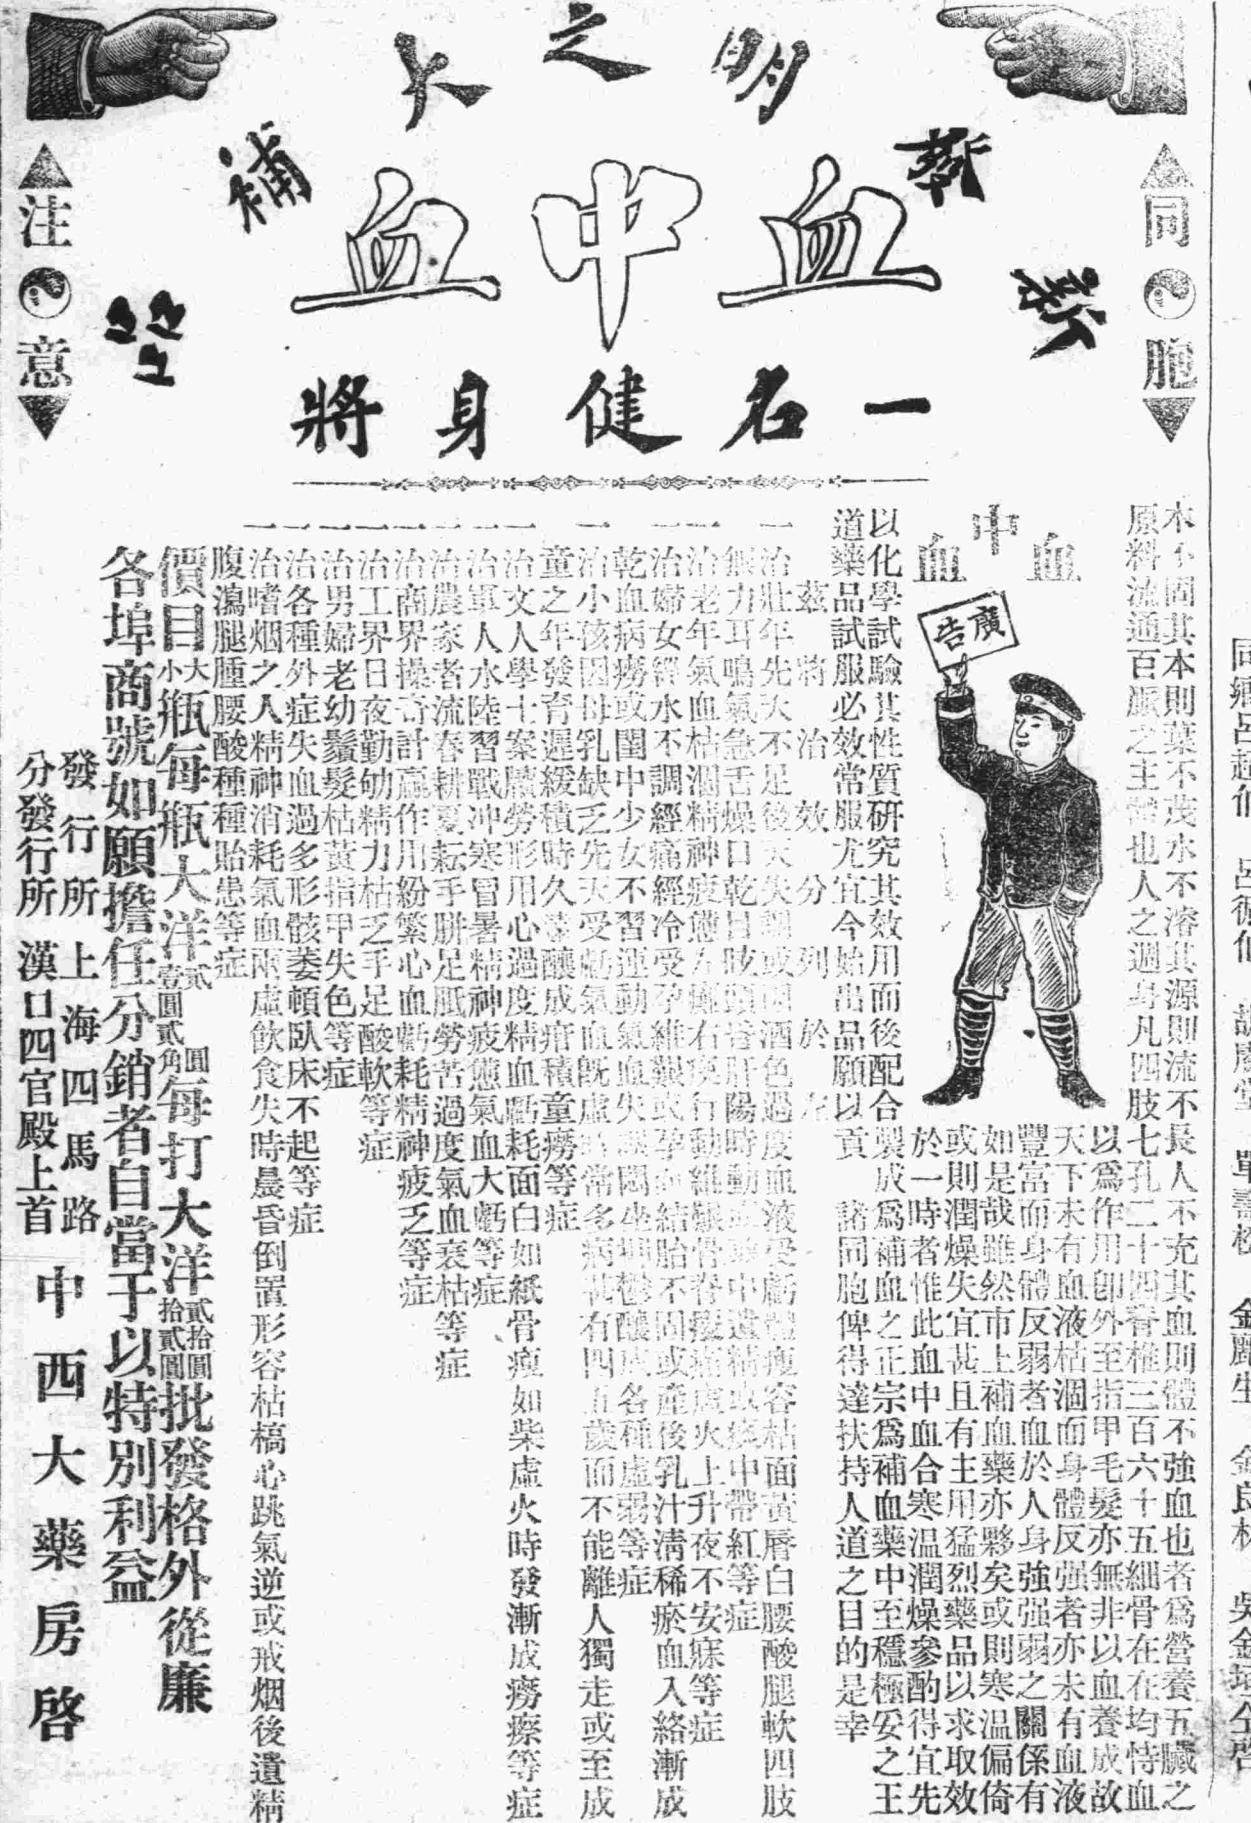 同胞
注意
新發明之大補品
血中血
一名健身將
血中血
廣告
木不固其本則葉不茂水不溶其源則流不長人不充其血則體不強血也者爲營養五臟之
原料流通百脈之主體也人之週身凡四肢七孔二十四脊椎三百六十五細骨在在均恃血
以爲作用卽外至指甲毛髮亦無非以血養成故
天下未有血液枯涸而身體反强者亦未有血液
豐富而身體反弱者血於人身強弱之關係有
如是哉雖然市上補血藥亦夥矣或則寒溫偏倚
或則潤燥失宜甚且有主用猛烈藥品以求取效
於一時者惟此血中血合寒溫潤燥參酌得宜先
以化學試驗其性質研究其效用而後配合製成爲補血之正宗爲補血藥中至穩極妥之王
道藥品試服必效常服尤宜今始出品願以貢 諸同胞俾得達扶持人道之目的是幸
茲將治效分列於左
一治壯年先天不足後天失調或因酒色過度血液受虧體瘦容枯面黃唇白腰酸腿軟四肢
無力耳鳴氣急舌燥口乾目眩頭昏肝陽時動或夢中遺精或痰中帶紅等症
一治老年氣血枯涸精神疲憊左癱右瘓行動維艱骨脊痠痛虛火上升夜不安寐等症
一治婦女經水不調經痛經冷受孕維艱或孕而結胎不固或產後乳汁淸稀瘀血入絡漸成
乾血病癆或閨中少女不習運動氣血失 悶坐 鬱釀成各種虛弱等症
一治小孩因母乳缺乏先天受虧氣血旣虛 常多病甚有四五歲而不能離人獨走或至成
童之年發育遲緩積時久 釀成疳積童癆等症
一治文人學士案牘勞形用心過度精血虧耗面白如紙骨瘦如柴虛火時發漸成癆瘵等症
一治軍人水陸習戰冲寒冒暑精神疲憊氣血大虧等症
一治農家者流春耕夏耘手胼足胝勞苦過度氣血衰枯等症
一治商界操奇計贏作用紛繁心血虧耗精神疲乏等症
一治工界日夜勤劬精力枯乏手足酸軟等症
一治男婦老幼鬚髮枯黃指甲失色等症
一治各種外症失血過多形骸萎頓臥床不起等症
一治嗜烟之人精神消耗氣血兩虛飮食失時晨昏倒置形容枯槁心跳氣逆或戒烟後遺精
腹瀉腿腫腰酸種種貽患等症
價目大小瓶每瓶大洋貳圓壹圓貳角每打大洋貳拾圓拾貳圓批發格外從廉
各埠商號如願擔任分銷者自當予以特別利益
發行所上海四馬路
分發行所漢口四官殿上首
中西大藥房啓